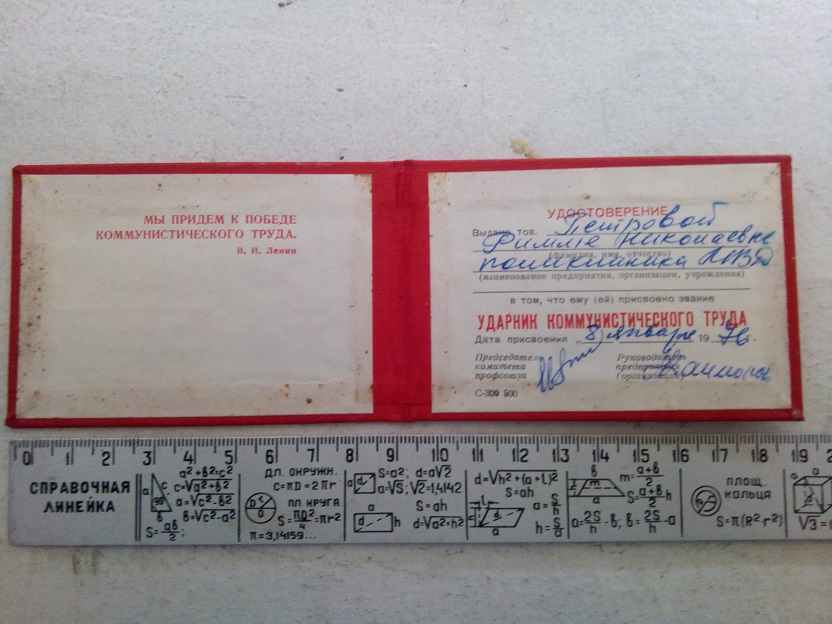 МЫ ПРИДЕМ К ПОБЕДЕ
КОММУНИСТИЧЕСКОГО ТРУДА.
В. И. Ленин
УДОСТОВЕРЕНИЕ
Выдано тов. Петровой
Римме Николаевне
(фамилия, имя, отчество)
поликлиника
(наименование предприятия, организации, учреждения)
в том, что ему (ей) присвоено звание
УДАРНИК КОММУНИСТИЧЕСКОГО ТРУДА
Дата присвоения „8" января 1976.
Председатель комитета профсоюза
Руководитель предприятия (организации)
С-300 500
0 1 2 3 4 5 6 7 8 9 10 11 12 13 14 15 16 17 18 19
СПРАВОЧНАЯ
ЛИНЕЙКА
a²+b²=c²
c=√a²+b²
a=√c²-b²
b=√c²-a²
S=ab/2;
ДЛ. ОКРУЖН.
C=πD=2πr
ПЛ. КРУГА
S=πD²/4=πr²
π=3,14159...
S=a²; d=a√2
a=√S; √2=1,4142
S=ah
d=√a²+h²
d=√h²+(a+l)²
S=ah
a=S/h
h=S/a
m=a+b/2
S=a+b/2 h
a=2S/h-b; b=2S/h-a
ПЛОЩ.
КОЛЬЦА
S=π(R²-r²)